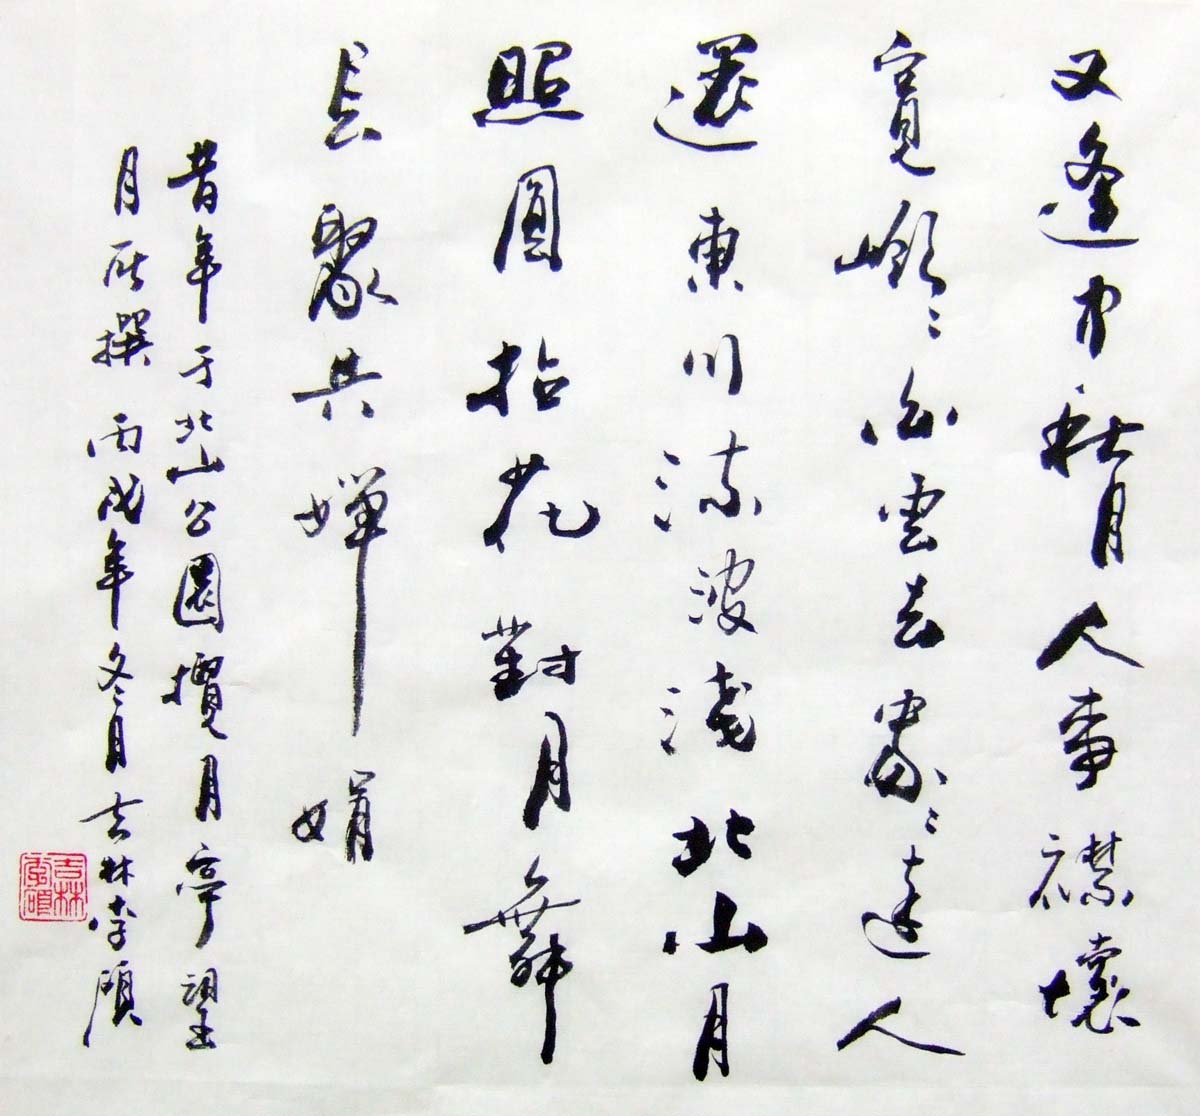 又逢中秋月人事襟懷
寬嶺〻白雲去家〻遠人
還東川流波淺北山月
照圓拈花對月舞
長聚共嬋娟
昔年于北山公園攬月亭望
月所撰 丙戌年冬月吉林李碩
吉林李碩